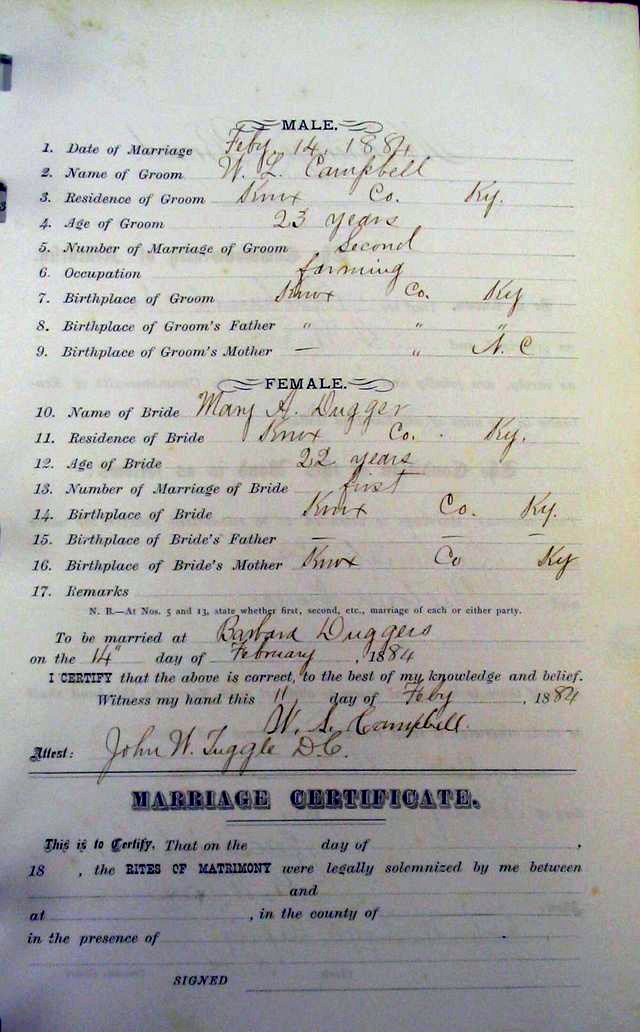 MALE.
1. Date of Marriage Feby. 14, 1884
2. Name of Groom W. L. Campbell
3. Residence of Groom Knox Co. Ky.
4. Age of Groom 23 years
5. Number of Marriage of Groom Second
6. Occupation farming
7. Birthplace of Groom Knox Co. Ky
8. Birthplace of Groom's Father " " "
9. Birthplace of Groom's Mother — " N. C
FEMALE.
10. Name of Bride Mary A. Dugger
11. Residence of Bride Knox Co. Ky.
12. Age of Bride 22 years
13. Number of Marriage of Bride first
14. Birthplace of Bride Knox Co. Ky.
15. Birthplace of Bride's Father — — —
16. Birthplace of Bride's Mother Knox Co Ky
17. Remarks
N. B.—At Nos. 5 and 13, state whether first, second, etc., marriage of each or either party.
To be married at Barbara Duggers
on the 14" day of February, 1884
I CERTIFY that the above is correct, to the best of my knowledge and belief.
Witness my hand this 11 day of Feby, 1884
W. S. Campbell.
Attest: John W. Tuggle D.C.
MARRIAGE CERTIFICATE.
This is to Certify, That on the day of ,
18 , the RITES OF MATRIMONY were legally solemnized by me between
and
at , in the county of
in the presence of
SIGNED